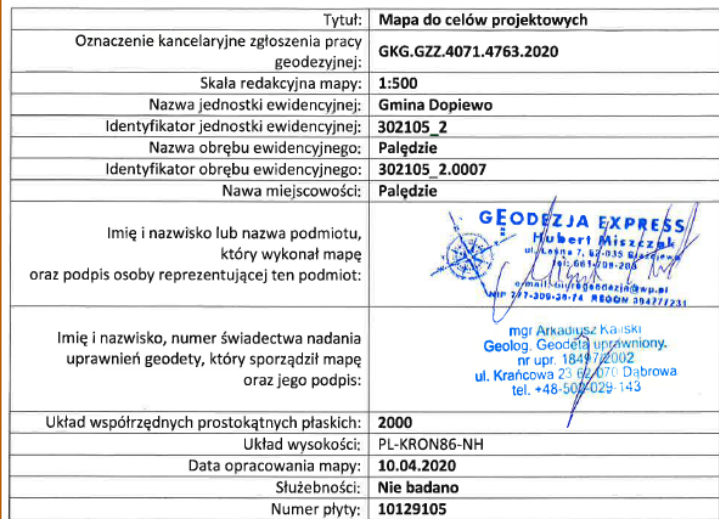 Tytuł: Mapa do celów projektowych
Oznaczenie kancelaryjne zgłoszenia pracy
geodezyjnej: GKG.GZZ.4071.4763.2020
Skala redakcyjna mapy: 1:500
Nazwa jednostki ewidencyjnej: Gmina Dopiewo
Identyfikator jednostki ewidencyjnej: 302105_2
Nazwa obrębu ewidencyjnego: Palędzie
Identyfikator obrębu ewidencyjnego: 302105_2.0007
Nawa miejscowości: Palędzie
Imię i nazwisko lub nazwa podmiotu,
który wykonał mapę
oraz podpis osoby reprezentującej ten podmiot:
GEODEZJA EXPRESS
Hubert Miszczak
ul. Leśna 7, 62-035
tel.
NIP 777-309-38-74 REGON 384777231
Imię i nazwisko, numer świadectwa nadania
uprawnień geodety, który sporządził mapę
oraz jego podpis:
mgr Arkadiusz Kaliski
Geolog. Geodeta uprawniony.
nr upr. 18497/2002
ul. Krańcowa 23 62-070 Dąbrowa
tel. +48-500-029-143
Układ współrzędnych prostokątnych płaskich: 2000
Układ wysokości: PL-KRON86-NH
Data opracowania mapy: 10.04.2020
Służebności: Nie badano
Numer płyty: 10129105